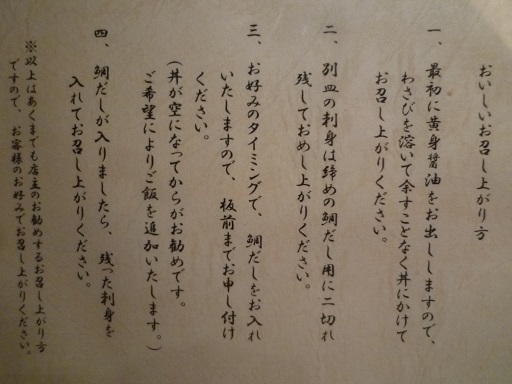 おいしいお召し上がり方
一、最初に黄身醤油をお出ししますので、
わさびを溶いて余すことなく丼にかけて
お召し上がりください。
二、別皿の刺身は締めの鯛だし用に二切れ
残しておめし上がりください。
三、お好みのタイミングで、鯛だしをお入れ
いたしますので、板前までお申し付け
ください。
(丼が空になってからがお勧めです。
ご希望によりご飯を追加いたします。)
四、鯛だしが入りましたら、残った刺身を
入れてお召し上がりください。
※以上はあくまでも店主のお勧めするお召し上がり方
ですので、お客様のお好みでお召し上がりください。